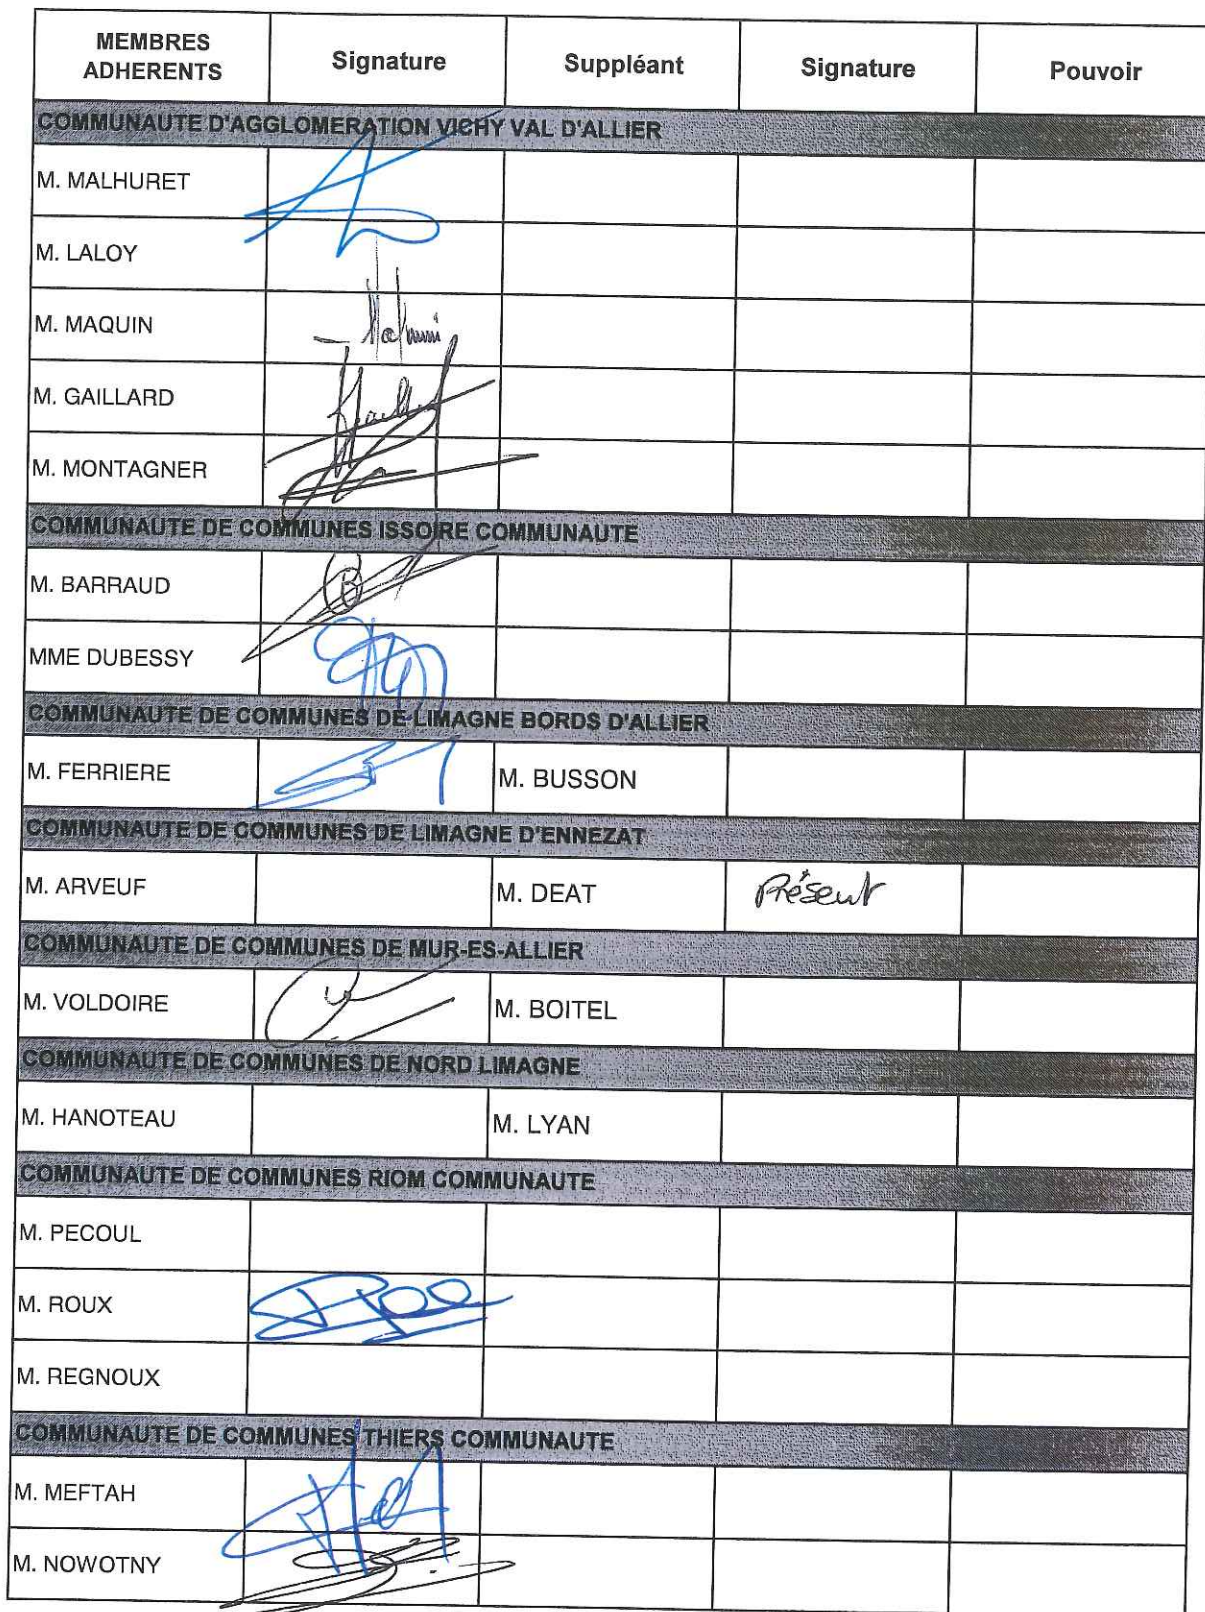 MEMBRES ADHERENTS Signature Suppléant Signature Pouvoir
COMMUNAUTE D'AGGLOMERATION VICHY VAL D'ALLIER
M. MALHURET
M. LALOY
M. MAQUIN
M. GAILLARD
M. MONTAGNER
COMMUNAUTE DE COMMUNES ISSOIRE COMMUNAUTE
M. BARRAUD
MME DUBESSY
COMMUNAUTE DE COMMUNES DE LIMAGNE BORDS D'ALLIER
M. FERRIERE M. BUSSON
COMMUNAUTE DE COMMUNES DE LIMAGNE D'ENNEZAT
M. ARVEUF M. DEAT Présent
COMMUNAUTE DE COMMUNES DE MUR-ES-ALLIER
M. VOLDOIRE M. BOITEL
COMMUNAUTE DE COMMUNES DE NORD LIMAGNE
M. HANOTEAU M. LYAN
COMMUNAUTE DE COMMUNES RIOM COMMUNAUTE
M. PECOUL
M. ROUX
M. REGNOUX
COMMUNAUTE DE COMMUNES THIERS COMMUNAUTE
M. MEFTAH
M. NOWOTNY